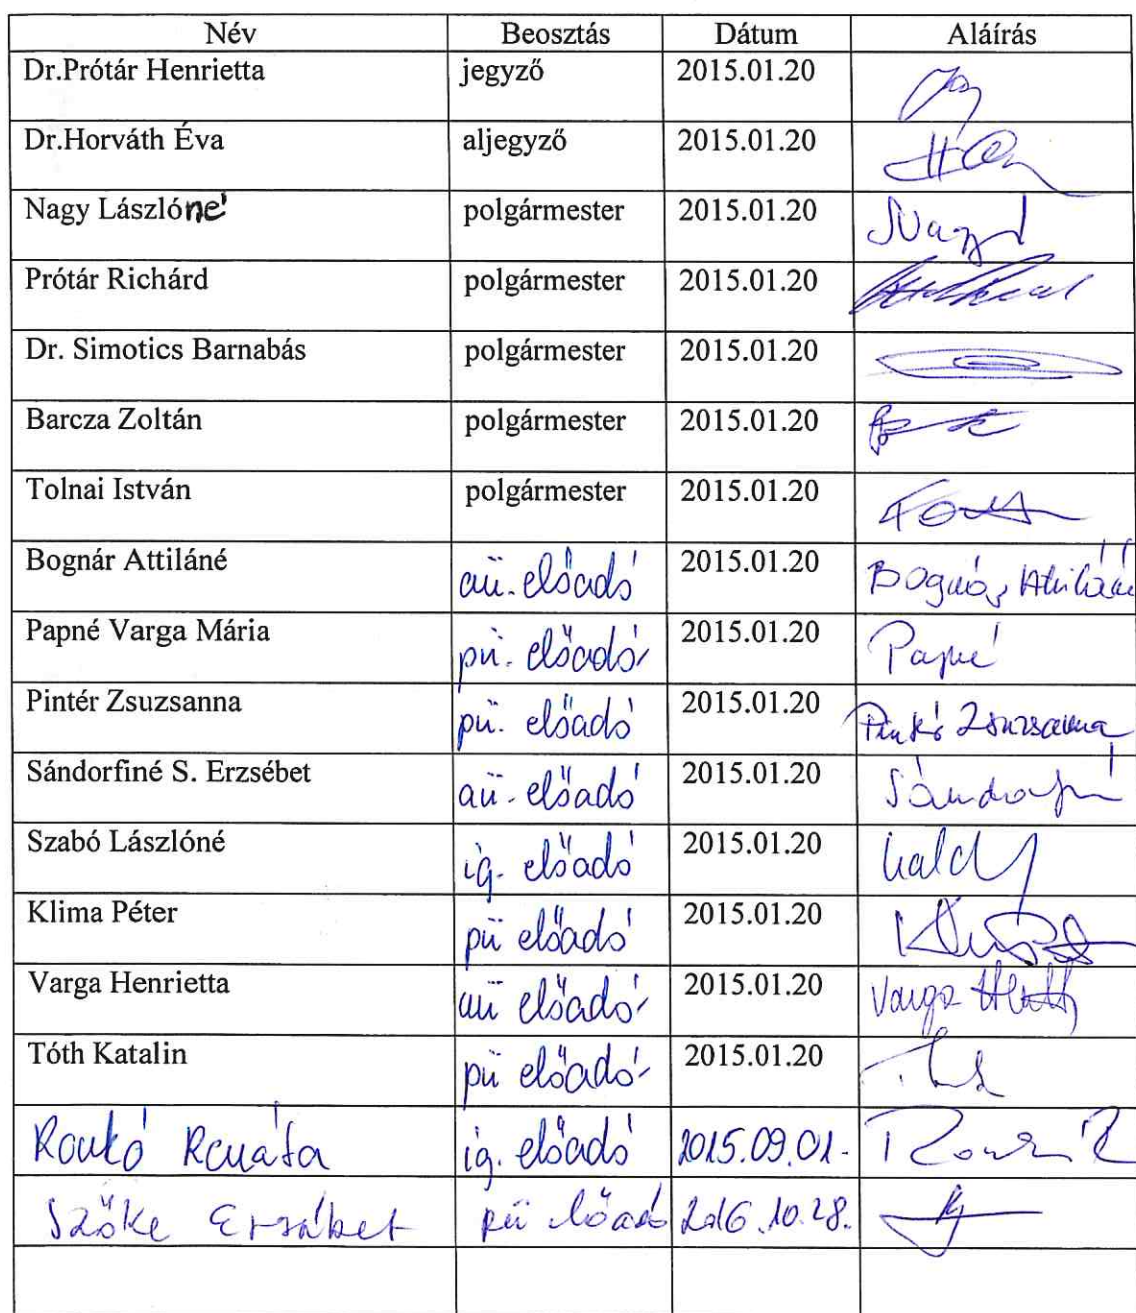 Név Beosztás Dátum Aláírás
Dr.Prótár Henrietta jegyző 2015.01.20
Dr.Horváth Éva aljegyző 2015.01.20
Nagy Lászlóné polgármester 2015.01.20 Nagy
Prótár Richárd polgármester 2015.01.20
Dr. Simotics Barnabás polgármester 2015.01.20
Barcza Zoltán polgármester 2015.01.20
Tolnai István polgármester 2015.01.20
Bognár Attiláné aü. előadó 2015.01.20 Bognár Attiláné
Papné Varga Mária pü. előadó 2015.01.20 Papné
Pintér Zsuzsanna pü. előadó 2015.01.20 Pintér Zsuzsanna
Sándorfiné S. Erzsébet aü. előadó 2015.01.20 Sándorfiné
Szabó Lászlóné ig. előadó 2015.01.20
Klima Péter pü előadó 2015.01.20
Varga Henrietta aü előadó 2015.01.20 Varga
Tóth Katalin pü előadó 2015.01.20
Ronkó Renáta ig. előadó 2015.09.01.
Szőke Erzsébet pü előadó 2016.10.28.